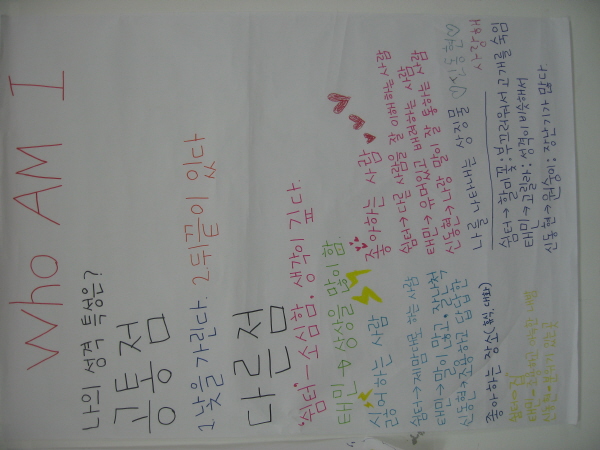 WHO AM I
나의 성격 특성은?
공통점
1. 낯을 가린다. 2. 뒤끝이 있다
다른점
"쉼터"-소심함. 생각이 깊다.
태민 → 상상을 많이 함.
싫어하는 사람
쉼터→제맘대로 하는 사람
태민→말이 많고, 잘난척
신동현→조용하고 답답한
좋아하는 장소(휴식, 대화)
쉼터→집
좋아하는 사람
쉼터→다른 사람을 잘 이해하는 사람
태민→유머있고 배려하는 사람
신동현→나랑 말이 잘 통하는 사람
나를 나타내는 상징물 ♡신동현♡
사랑해
쉼터→할미꽃:부끄러워서 고개를 숙임
태민→고릴라: 성격이 비슷해서
신동현→원숭이: 장난기가 많다.